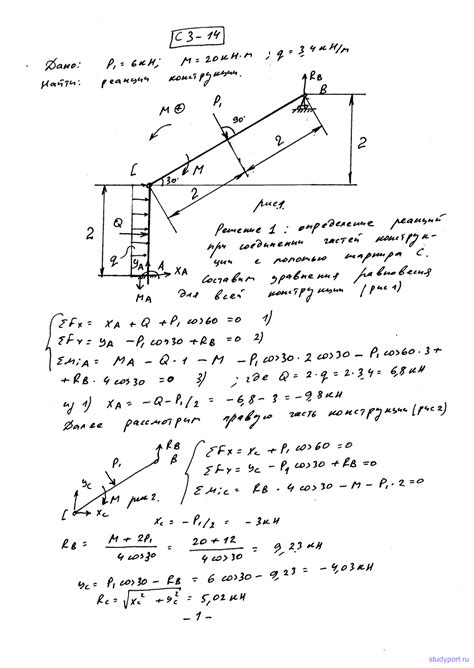 С3-14
Дано: P₁ = 6 кН; M = 20 кН·м ; q = 3,4 кН/м
Найти: реакции конструкции.
R_B
B
P₁
M ⊕
90°
C
30°
M
2
2
2
2
Q
q
y_A
A
x_A
M_A
рис1.
Решение 1: определение реакций
при соединении частей конструк-
ции с помощью шарнира С.
Составим уравнения равновесия
для всей конструкции (рис 1)
ΣFx = x_A + Q + P₁ cos60 = 0 1)
ΣFy = y_A - P₁ cos30 + R_B = 0 2)
ΣMi_A = M_A - Q·1 - M - P₁ cos30 · 2 cos30 - P₁ cos60 · 3 +
+ R_B · 4 cos30 = 0 3) ; где Q = 2·q = 2·3,4 = 6,8 кН
из 1) x_A = -Q - P₁/2 = -6,8 - 3 = -9,8 кН
Далее рассмотрим правую часть конструкции (рис 2)
R_B
B
P₁
y_C
M
рис 2.
C
x_C
ΣFx = x_C + P₁ cos60 = 0
ΣFy = y_C - P₁ cos30 + R_B = 0
ΣMi_C = R_B · 4 cos30 - M - P₁ · 2 = 0
x_C = -P₁/2 = -3 кН
R_B = (M + 2P₁)/(4 cos30) = (20 + 12)/(4 cos30) = 9,23 кН
y_C = P₁ cos30 - R_B = 6 cos30 - 9,23 = -4,03 кН
R_C = √(x_C² + y_C²) = 5,02 кН
- 1 -
studyport.ru